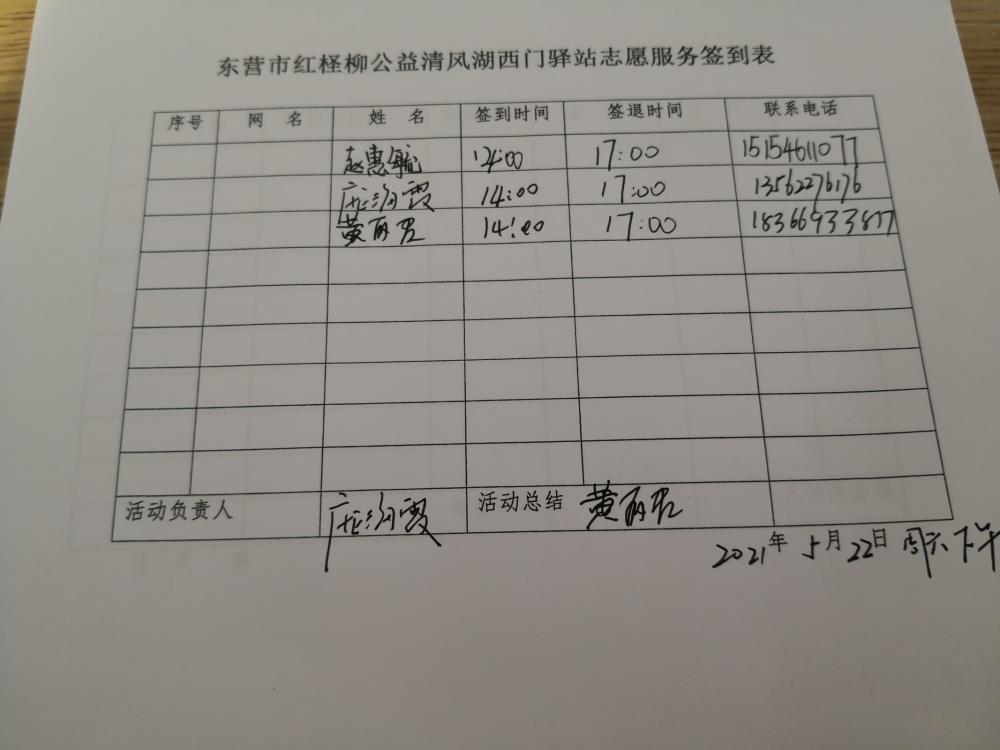 东营市红柽柳公益清风湖西门驿站志愿服务签到表
序号 网 名 姓 名 签到时间 签退时间 联系电话
赵惠毓 14:00 17:00 15154611077
霞 14:00 17:00 13562276176
黄丽君 14:00 17:00 18366933877
活动负责人 霞 活动总结 黄丽君
2021年 5月22日 周六下午